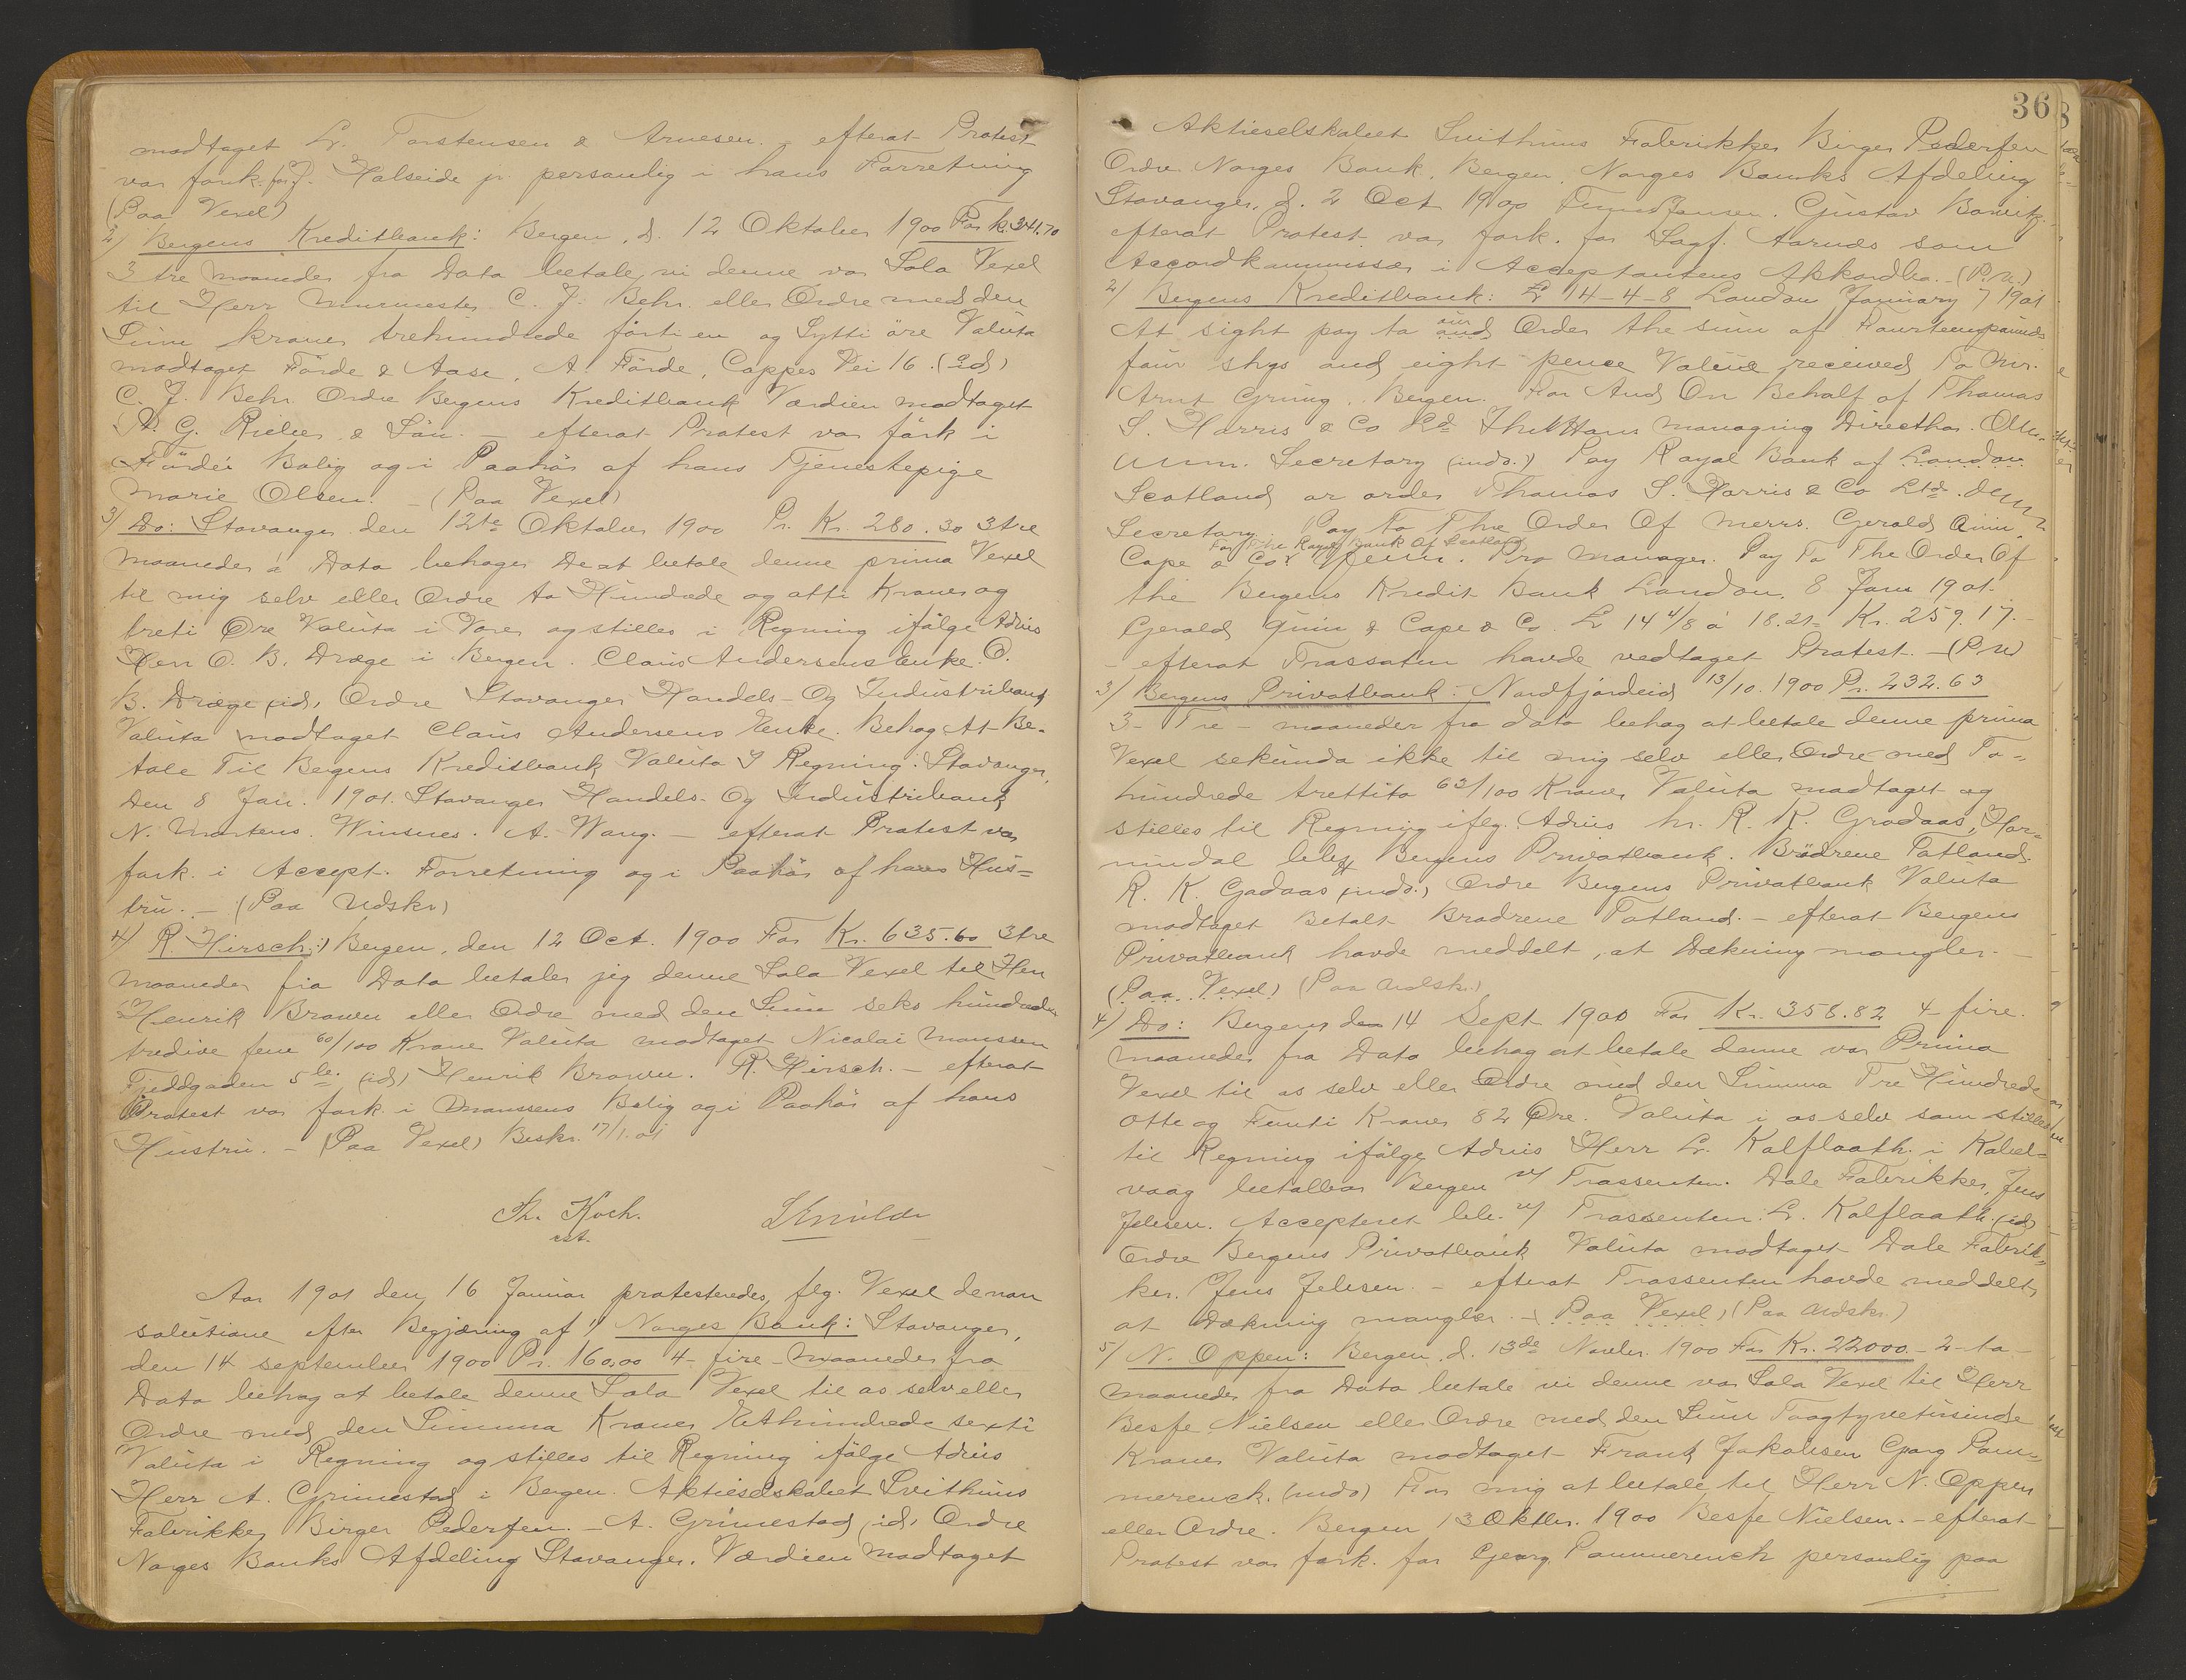 modtaget L. Torstensen & Arnesen. - efterat Protest
var fork. for J. Halseide jr. personlig i hans Forretning
(Paa Vexel)
2) Bergens Kreditbank: Bergen, d. 12 Oktober 1900 For k. 341.70
3 tre maaneder fra Dato betale vi denne vor Sola Vexel
til Herr Murmester C. J. Behr eller Ordre med den
Sum kroner trehundrede förti en og Sytti öre Valuta
modtaget Förde & Aase, A. Förde, Cappes Vei 16. (id)
C. J. Behr Ordre Bergens Kreditbank Værdien modtaget
A. G. Rieber & Sön. - efterat Protest var fork i
Förde's Bolig og i Paahör af hans Tjenestepige
Marie Olsen. - (Paa Vexel)
3) Do: Stavanger den 12te Oktober 1900 Pr. Kr. 280.30 3 tre
maaneder à Dato behager De at betale denne prima Vexel
til mig selv eller Ordre to Hundrede og otti Kroner og
treti Øre Valuta i Varer og stilles i Regning ifölge Advis
Herr O. B. Dræge i Bergen. Claus Andersens Enke. O.
B. Dræge (id) Ordre Stavanger Handels- Og Industribank
Valuta modtaget Claus Andersens Enke. Behag At Be-
tale Til Bergens Kreditbank Valuta I Regning. Stavanger,
Den 8 Jan. 1901. Stavanger Handels- Og Industribank
N. Mortens. Winsnes. A. Wang. - efterat Protest var
fork. i Accept. Forretning og i Paahör af hans Hus=
tru. - (Paa Udskr)
4) R. Hirsch:) Bergen, den 12 Oct. 1900 For Kr. 635.60 3 tre
maaneder fra Dato betaler jeg denne Sola Vexel til Herr
Henrik Brown eller Ordre med den Sum seks hundrede
tredive fem 60/100 Krone Valuta modtaget Nicolai Monssen
Fjeldgaden 5 (id) Henrik Brown. R. Hirsch. - efterat
Protest var fork. i Monssens Bolig og i Paahör af hans
Hustru. - (Paa Vexel) Beskr. 17/1.01
Th. Koch.
cst.
Aar 1901 den 16 Januar protesteredes flg. Vexel de non
solutione efter Begjæring af 1) Norges Bank: Stavanger,
den 14 september 1900 Pr. 160,00 4- fire - maaneder fra
Dato behag at betale denne Sola Vexel til os selv eller
Ordre med den Summa Kroner Ethundrede sexti
Valuta i Regning og stilles til Regning ifölge Advis
Herr A. Grimestad i Bergen. Aktieselskabet Svithuns
Fabrikker Birger Pedersen. - A. Grimestad (id) Ordre
Norges Banks Afdeling Stavanger. Værdien modtaget
36
Aktieselskabet Svithuns Fabrikker Birger Pedersen
Ordre Norges Bank, Bergen, Norges Banks Afdeling
Stavanger, d. 2 Oct 1900 Gustav
efterat Protest var fork. for Sagf. Aarnes som
Accordkommissær i Acceptantens Akkordbo. - (P.U.)
2) Bergens Kreditbank: £ 14-4-8 London January 7 1901
At sight pay to our and Order the sum of Fourteen pounds
four shgs and eight pence Value received To Mr.
Arnt Gruing. Bergen. For And On Behalf of Thomas
S. Harris & Co Ltd Managing Directhor.
Secretary (indo.) Pay Royal Bank of London
Scotland or order Thomas S. Harris & Co Ltd.
Secretary. Pay To The Order Of Merrs. Gerald Quin,
For The Royal Bank Of Scotland
Cape & Co. Pro Manager. Pay To The Order Of
the Bergens Kredit Bank London, 8 Janu 1901.
Gerald Quin & Cape & Co. £ 14 4/8 à 18.21= Kr. 259.17.-
- efterat Trassaten havde vedtaget Protest. - (P.U)
3) Bergens Privatbank: Nordfjordeid 13/10. 1900 Pr. 232.63
3- Tre - maaneder fra dato behag at betale denne prima
Vexel sekunda ikke til mig selv eller Ordre med To-
hundrede trettito 63/100 Kroner Valuta modtaget og
stilles til Regning iflg. Advis hr. R. K. Grodaas, Hor=
nindal Bergens Privatbank. Brödrene Tatland.
R. K. Gadaas (indo.) Ordre Bergens Privatbank Valuta
modtaget Betalt Brødrene Tatland. - efterat Bergens
Privatbank havde meddelt, at Dækning mangler. -
(Paa Vexel) (Paa Udskr.)
4) Do: Bergens den 14 Sept 1900 For Kr. 358.82 4- fire.
maaneder fra Dato behag at betale denne vor Prima
Vexel til os selv eller Ordre med den Summa Tre Hundrede
otte og Femti Kroner 82 Øre. Valuta i os selv som stilles
til Regning ifölge Advis Herr L. Kalflaath. i Kabel=
vaag betalbar Bergen v/ Trassenten. Dale Fabrikker, Jens
Jebsen. Accepteret beb. v/ Trassenten. L. Kalflaath. (id)
Ordre Bergens Privatbank Valuta modtaget Dale Fabrik=
ker. Jens Jebsen. - efterat Trassenten havde meddelt,
at Dækning mangler. - Paa Vexel) (Paa Udskr.)
5) N. Oppen: Bergen, d. 13de Novbr. 1900 For Kr. 22000.- 2- to -
maaneder fra Dato betale vi denne vor Sola Vexel til Herr
Besse Nielsen eller Ordre med den Sum Toogtyvetusinde
Kroner Valuta modtaget Frank Jakobsen Georg Pom=
merenck. (indo) For mig at betale til Herr N. Oppen
eller Ordre. Bergen 13 Oktbr. 1900 Besse Nielsen. - efterat
Protest var fork. for Georg Pommerenck personlig paa